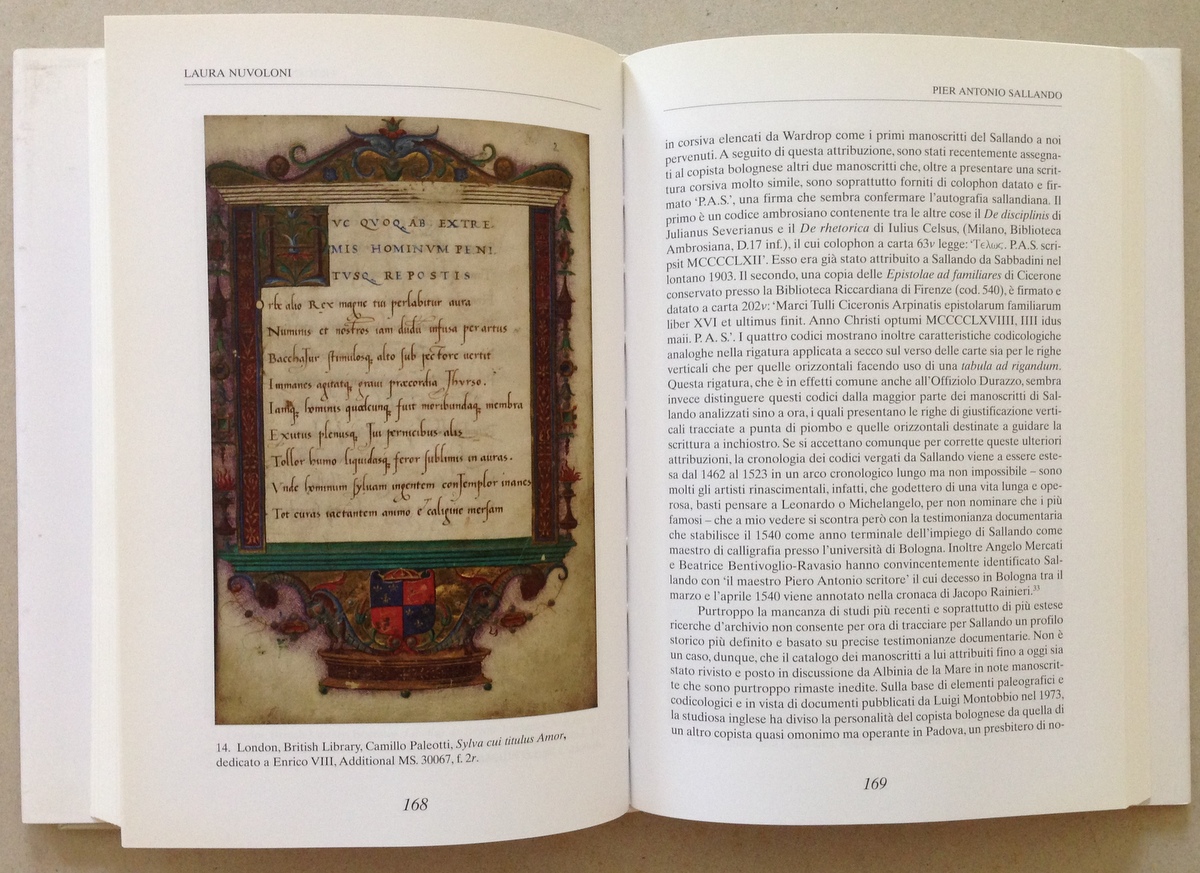 LAURA NUVOLONI
2
HVC QVOQ. AB EXTRE.
MIS HOMINVM PENI.
TVSQ. REPOSTIS
Orbe alio Rex magne tui perlabitur aura
Numinis et nostros iam dudum infusa per artus
Bacchatur stimulosq, alto sub pectore uertit
Immanes agitatq, graui præcordia Thyrso.
Iamq, hominis quodcunq, fuit moribundaq, membra
Exutus plenusq, tui pernicibus alis
Tollor humo liquidasq, feror sublimis in auras.
Vnde hominum syluam ingentem contemplor inanes
Tot curas iactantem animo e caligine mersam
14. London, British Library, Camillo Paleotti, Sylva cui titulus Amor,
dedicato a Enrico VIII, Additional MS. 30067, f. 2r.
168
PIER ANTONIO SALLANDO
in corsiva elencati da Wardrop come i primi manoscritti del Sallando a noi
pervenuti. A seguito di questa attribuzione, sono stati recentemente assegna-
ti al copista bolognese altri due manoscritti che, oltre a presentare una scrit-
tura corsiva molto simile, sono soprattutto forniti di colophon datato e fir-
mato ‘P.A.S.’, una firma che sembra confermare l’autografia sallandiana. Il
primo è un codice ambrosiano contenente tra le altre cose il De disciplinis di
Julianus Severianus e il De rhetorica di Iulius Celsus, (Milano, Biblioteca
Ambrosiana, D.17 inf.), il cui colophon a carta 63v legge: ‘Τελως. P.A.S. scri-
psit MCCCCLXII’. Esso era già stato attribuito a Sallando da Sabbadini nel
lontano 1903. Il secondo, una copia delle Epistolae ad familiares di Cicerone
conservato presso la Biblioteca Riccardiana di Firenze (cod. 540), è firmato e
datato a carta 202v: ‘Marci Tulli Ciceronis Arpinatis epistolarum familiarum
liber XVI et ultimus finit. Anno Christi optumi MCCCCLXVIIII, IIII idus
maii. P. A. S.’. I quattro codici mostrano inoltre caratteristiche codicologiche
analoghe nella rigatura applicata a secco sul verso delle carte sia per le righe
verticali che per quelle orizzontali facendo uso di una tabula ad rigandum.
Questa rigatura, che è in effetti comune anche all’Offiziolo Durazzo, sembra
invece distinguere questi codici dalla maggior parte dei manoscritti di Sal-
lando analizzati sino a ora, i quali presentano le righe di giustificazione verti-
cali tracciate a punta di piombo e quelle orizzontali destinate a guidare la
scrittura a inchiostro. Se si accettano comunque per corrette queste ulteriori
attribuzioni, la cronologia dei codici vergati da Sallando viene a essere este-
sa dal 1462 al 1523 in un arco cronologico lungo ma non impossibile – sono
molti gli artisti rinascimentali, infatti, che godettero di una vita lunga e ope-
rosa, basti pensare a Leonardo o Michelangelo, per non nominare che i più
famosi – che a mio vedere si scontra però con la testimonianza documentaria
che stabilisce il 1540 come anno terminale dell’impiego di Sallando come
maestro di calligrafia presso l’università di Bologna. Inoltre Angelo Mercati
e Beatrice Bentivoglio-Ravasio hanno convincentemente identificato Sal-
lando con ‘il maestro Piero Antonio scritore’ il cui decesso in Bologna tra il
marzo e l’aprile 1540 viene annotato nella cronaca di Jacopo Rainieri.33
Purtroppo la mancanza di studi più recenti e soprattutto di più estese
ricerche d’archivio non consente per ora di tracciare per Sallando un profilo
storico più definito e basato su precise testimonianze documentarie. Non è
un caso, dunque, che il catalogo dei manoscritti a lui attribuiti fino a oggi sia
stato rivisto e posto in discussione da Albinia de la Mare in note manoscrit-
te che sono purtroppo rimaste inedite. Sulla base di elementi paleografici e
codicologici e in vista di documenti pubblicati da Luigi Montobbio nel 1973,
la studiosa inglese ha diviso la personalità del copista bolognese da quella di
un altro copista quasi omonimo ma operante in Padova, un presbitero di no-
169